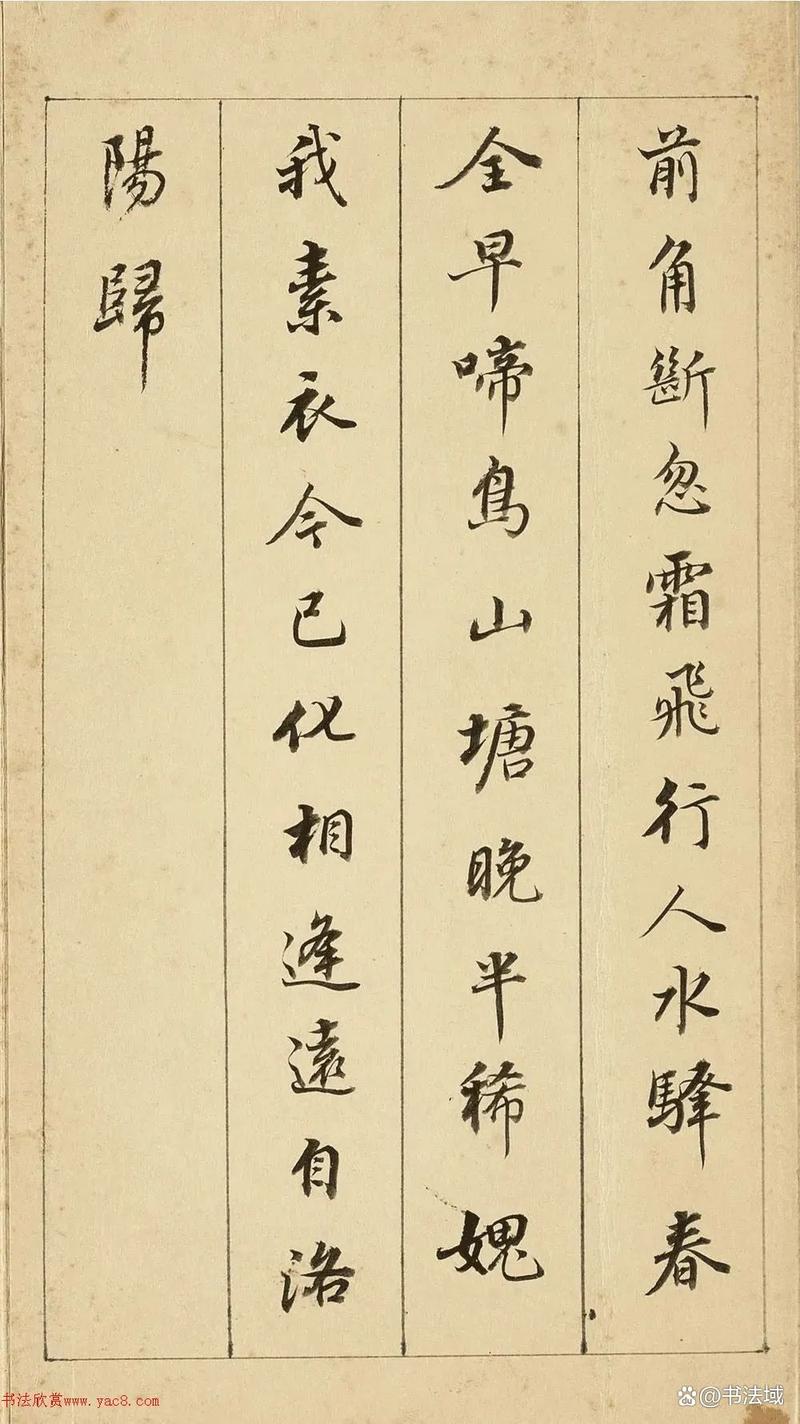 前角斷忽霜飛行人水驛春
全早啼鳥山塘晚半稀媿
我素衣今已化相逢遠自洛
陽歸
书法欣赏www.yac8.com
@书法域